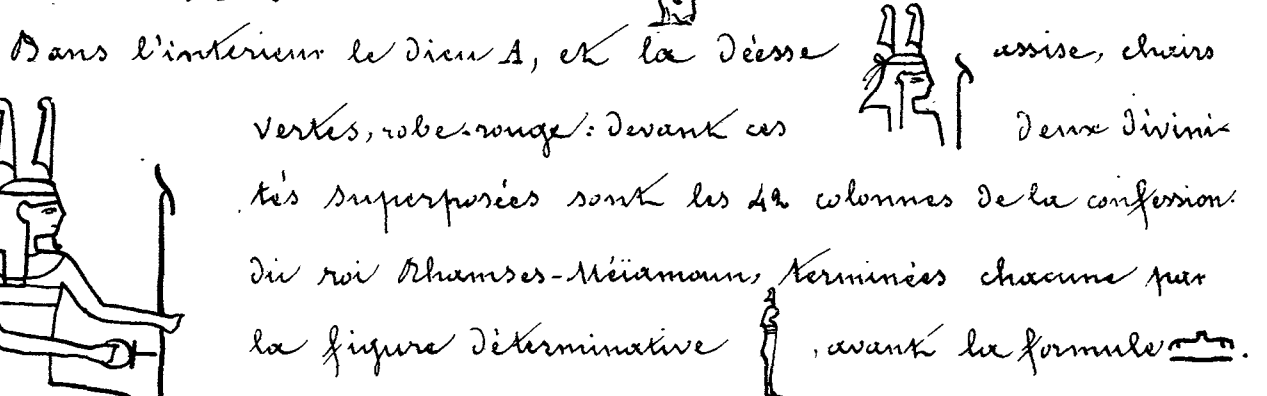 Dans l'intérieur le Dieu A, et la Déesse assise, chairs
vertes, robe-rouge: Devant ces Deux Divini-
tés superposées sont les 42 colonnes De la confession
Du roi Rhamses-Méïamoun, terminées chacune par
la figure Déterminative , avant la formule .